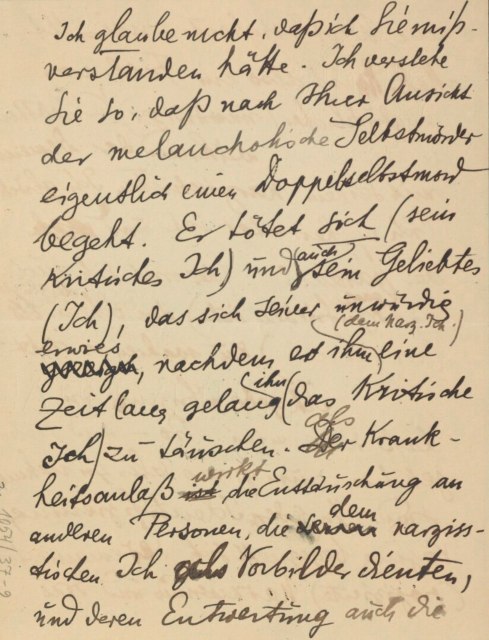 Ich glaube nicht, daß ich Sie miß-
verstanden hätte. Ich verstehe
Sie so, daß nach Ihrer Ansicht
der melancholische Selbstmörder
eigentlich einen Doppelselbstmord
begeht. Er tötet sich (sein
kritisches Ich) und (auch) sein Geliebtes
(Ich), das sich seiner unwürdig
(dem narz. Ich.)
erwies, nachdem es ihm eine
Zeitlang gelang ihn (das Kritische
Ich) zu täuschen. Der Krank-
als
wirkt
heitsanlaß ist, die Enttäuschung an
anderen Personen, die dem narziss-
tischen Ich als Vorbilder dienten,
und deren Entwertung auch die